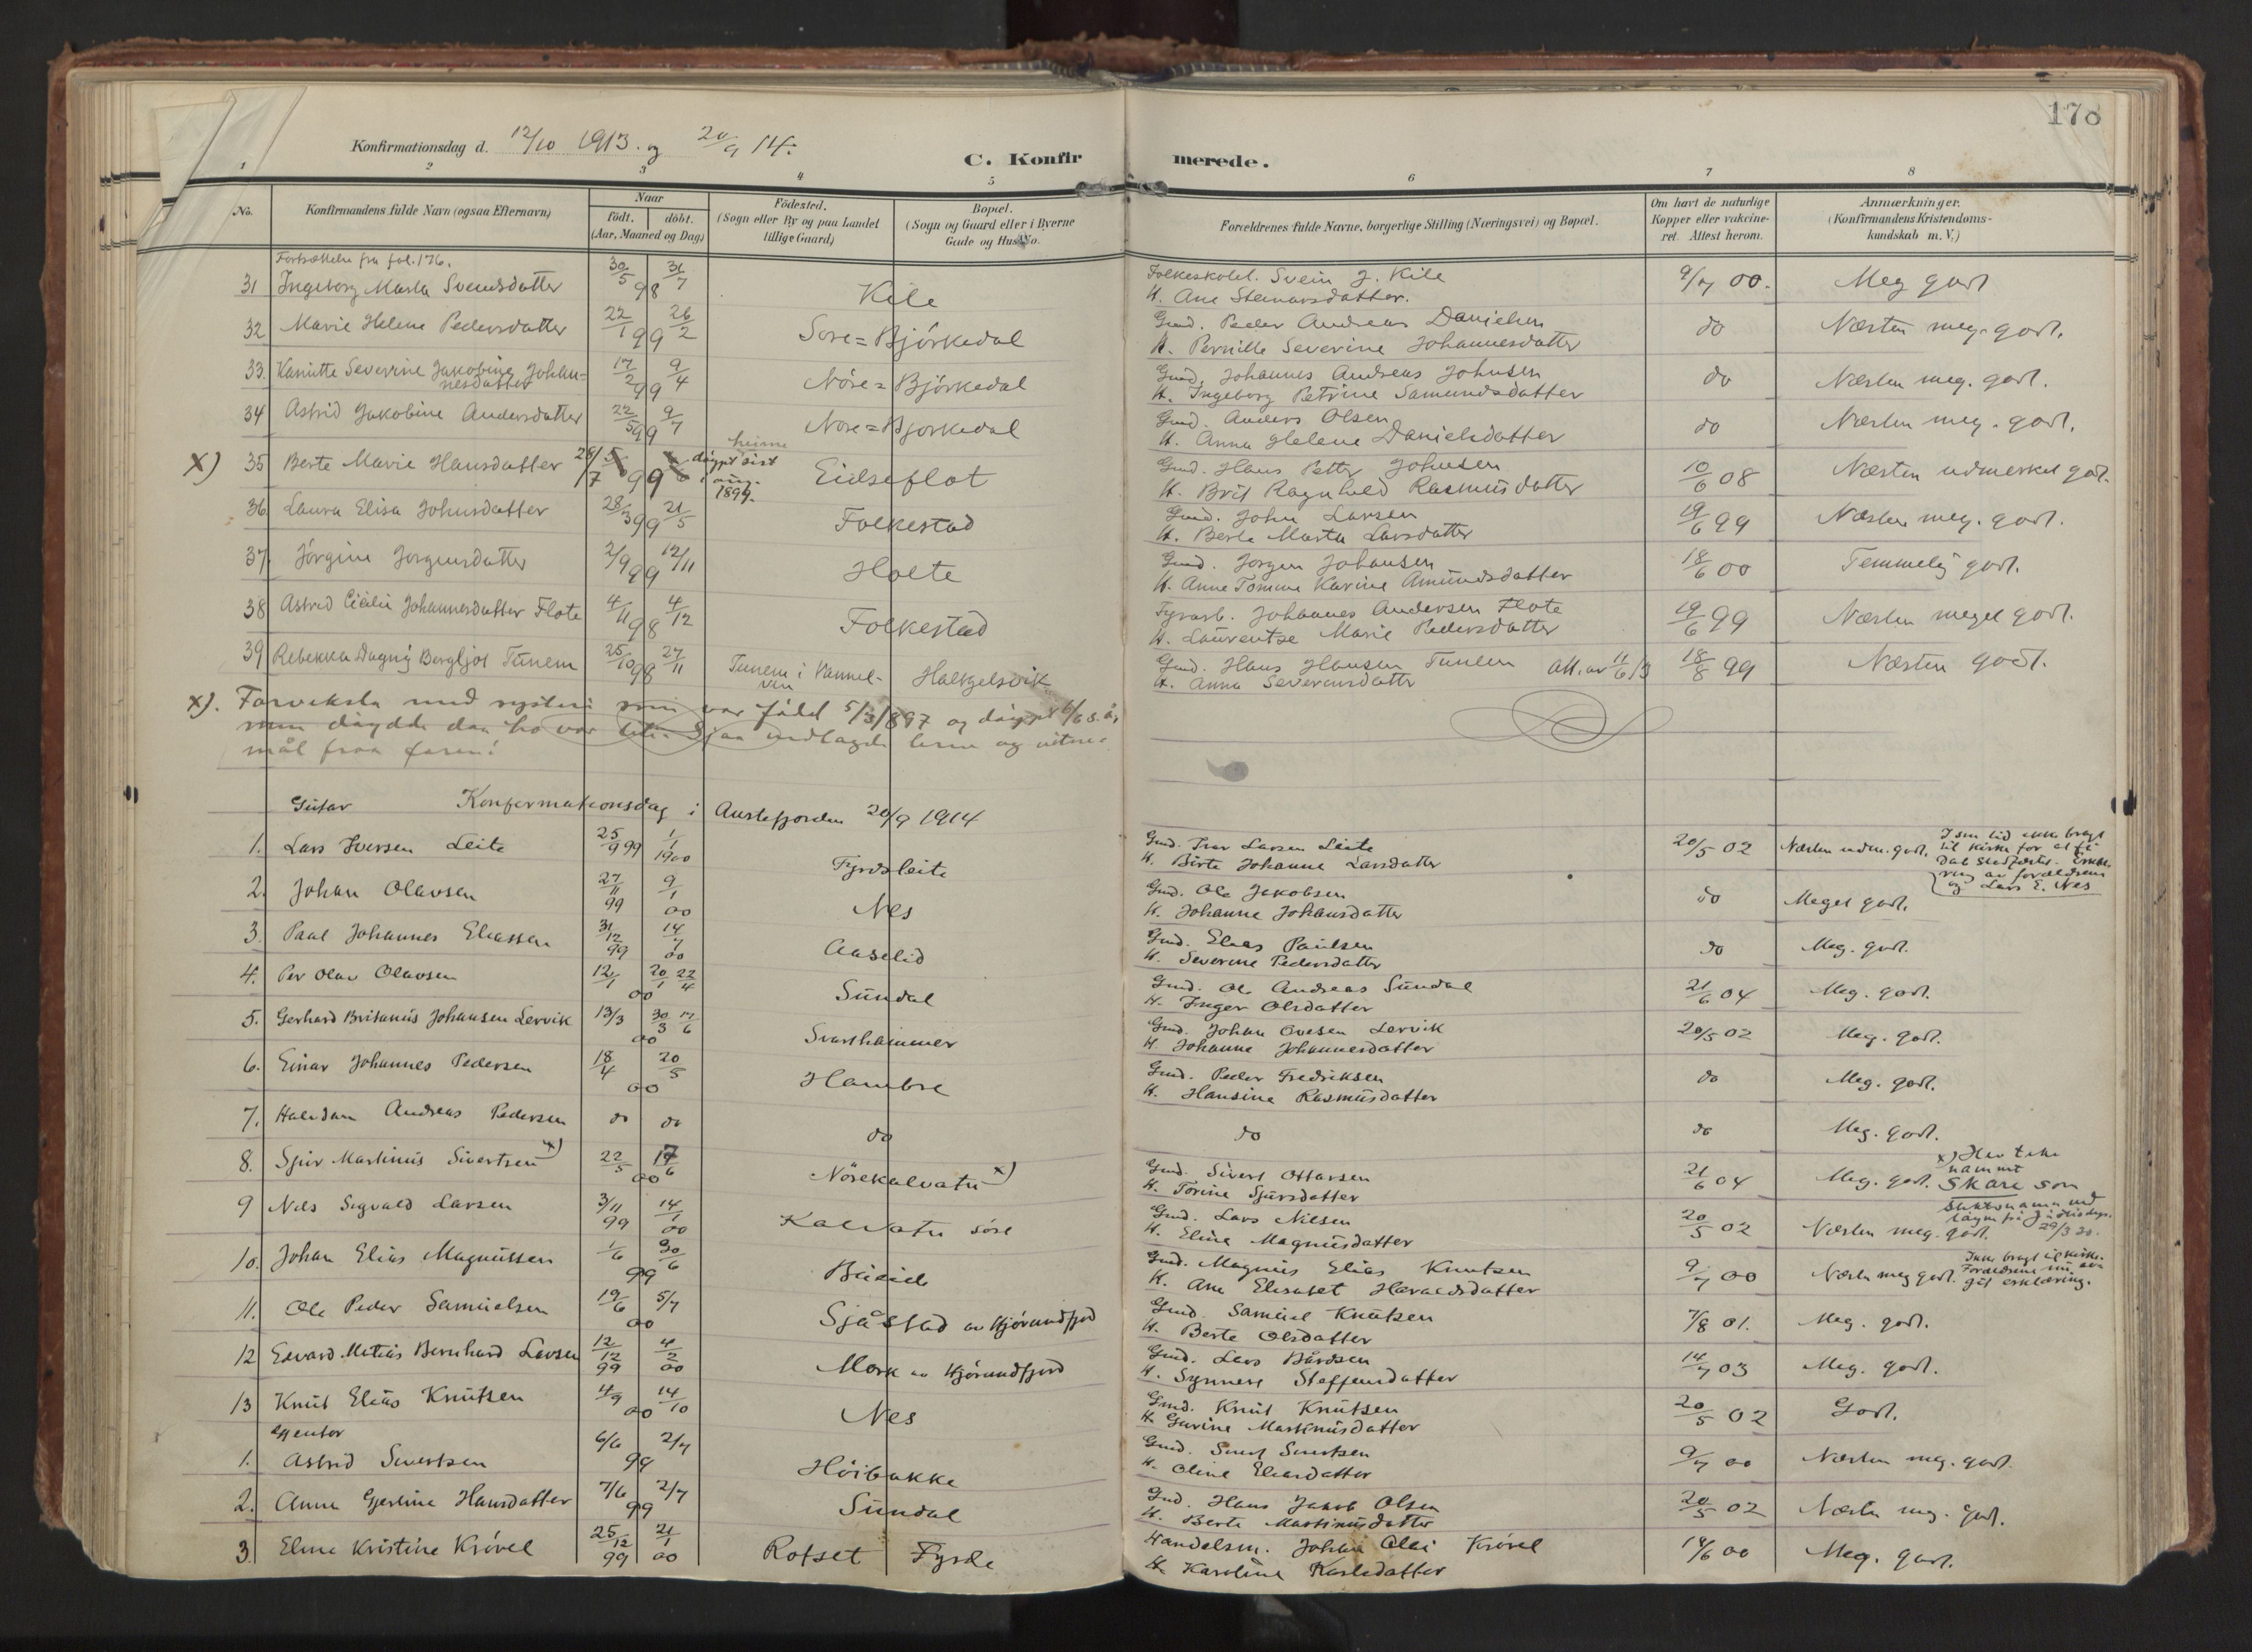 178
Konfirmationsdag d. 12/10 1913. og 20/9 14.
C. Konfirmerede.
1 2 3 4 5 6 7 8
No. Konfirmandens fulde Navn (ogsaa Efternavn) Naar födt. döbt. (Aar, Maaned og Dag) Födested. (Sogn eller By og paa Landet tillige Gaard) Bopæl. (Sogn og Gaard eller i Byerne Gade og Hus No. Forældrenes fulde Navne, borgerlige Stilling (Næringsvei) og Bopæl. Om havt de naturlige Kopper eller vakcineret. Attest herom. Anmærkninger. (Konfirmandens Kristendomskundskab m. V.)
Fortsættelse fra fol. 176.
31 Ingeborg Marta Sveinsdatter 30/5 98 31/7 Kile Folkeskolel. Svein J. Kile 9/7 00. Meg godt
H. Ane Steinarsdatter.
32 Marie Helene Pedersdatter 22/1 99 26/2 Sore=Björkedal Gmd. Peder Andreas Danielsen do Næsten meg. godt.
H. Pernille Severine Johannesdatter
33. Kanutte Severine Jakobine Johan= 17/2 99 9/4 Nöre=Björkedal Gmd. Johannes Andreas Johnsen do Næsten meg. godt.
nesdatter H. Ingeborg Petrine Samundsdatter
34 Astrid Jakobine Andersdatter 22/5 99 9/7 Nore=Bjorkedal Gmd. Anders Olsen do Næsten meg. godt.
H. Anna Helene Danielsdatter
heime
X) 35 Berte Marie Hansdatter 28/7 99 döypt sist i aug. 1899. Eidseflot Gmd. Hans Petter Johnsen 10/6 08 Næsten udmerket godt.
H. Brit Ragnhild Rasmusdatter
36 Laura Elisa Johnsdatter 28/3 99 21/5 Folkestad Gmd. John Larsen 19/6 99 Næsten meg. godt.
H. Berte Marta Larsdatter
37 Jörgine Jorgensdatter 2/9 99 12/11 Holte Gmd. Jorgen Johansen 18/6 00 Temmelig godt.
H. Anne Tomine Karine Amundsdatter
38 Astrid Cicilie Johannesdatter Flote 4/11 98 4/12 Folkestad Fyrarb. Johannes Andersen Flote 19/6 99 Næsten meget godt.
H. Laurentse Marie Pedersdatter
39 Rebekka Dagny Bergljot Tunem 25/10 98 27/11 Tunem i Vannelven Halkjelsvik Gmd. Hans Hansen Tunem att. av 11/6 13 18/8 99 Næsten godt.
H. Anna Severinsdatter
x). Forveksla med systeri som var fødd 5/3/1897 og døypt 6/6 s. år,
men døydde daa ho var lita. Sjaa vedlagde brev og vitne=
mål fraa faren!
Gutar Konfirmationsdag i Austefjorden 20/9 1914
1. Lars Iversen Leite 25/9 99 1/1 1900 Fyrdsleite Gmd. Iver Larsen Leite 20/5 02 Næsten udm. godt. I sin tid ikke bragt til kirke for at få dåb stadfæstet. Erklæring av forældrene og Lars E. Nes
H. Birte Johanne Larsdatter
2. Johan Olavsen 27/11 99 9/1 00 Nes Gmd. Ole Jakobsen do Meget godt.
H. Johanne Johansdatter
3. Paul Johannes Eliassen 31/12 99 14/7 00 Aaselid Gmd. Elias Paulsen do Meg. godt.
H. Severine Pedersdatter
4. Per Olav Olavsen 12/1 00 20/1 22/4 Sundal Gmd. Ole Andreas Sundal 21/6 04 Meg. godt.
H. Inger Olsdatter
5. Gerhard Britanus Johansen Lervik 13/3 00 30/3 17/6 Svarthammer Gmd. Johan Ovesen Lervik 20/5 02 Meg. godt.
H. Johanne Johannesdatter
6. Einar Johannes Pedersen 18/4 00 20/5 Hambre Gmd. Peder Fredriksen do Meg. godt.
H. Hansine Rasmusdatter
7. Halvdan Andreas Pedersen do do do do do Meg. godt.
8. Sjur Martinus Sivertsen x) 22/5 00 17/6 Nörekalvatn x) Gmd. Sivert Ottarsen 21/6 04 Meg. godt. x) Hev teke namnet Skare son slektsnamn ved løyve frå Justisdep. 29/3 30.
H. Torine Sjursdatter
9 Nils Sigvald Larsen 3/11 99 14/1 00 Kalvatn söre Gmd. Lars Nilsen 20/5 02 Næsten meg. godt.
H. Eline Magnusdatter
10. Johan Elias Magnussen 1/6 99 30/6 Buseid Gmd. Magnus Elias Knutsen 9/7 00 Næsten meg godt. Ikke bragt til kirke. Forældrene har git erklæring.
H. Ane Elisabet Haraldsdatter
11. Ole Peder Samuelsen 19/6 00 5/7 Sjåstad av Hjörundfjord Gmd Samuel Knutsen 7/8 01. Meg. godt.
H. Berte Olsdatter
12 Edvard Matias Bernhard Larsen 12/12 99 4/2 00 Mork av Hjörundfjord Gmd. Lars Bårdsen 14/7 03 Meg. godt.
H. Synnere Steffensdatter
13 Knut Elias Knutsen 4/9 00 14/10 Nes Gmd. Knut Knutsen 20/5 02 Godt.
H. Gurine Martinusdatter
Gjentor
1. Astrid Sivertsen 6/6 99 2/7 Höibakke Gmd. Sivert Sivertsen 9/7 00 Næsten meg. godt.
H. Oline Eliasdatter
2. Anne Gjertine Hansdatter 7/6 99 2/7 Sundal Gmd. Hans Jakob Olsen 20/5 02 Næsten meg. godt.
H. Berte Martinusdatter
3. Eline Kristine Krövel 25/12 99 21/1 00 Rotset Fyrde Handelsm. Johan Olai Krövel 14/6 00 Meg. godt.
H. Karoline Karlsdatter